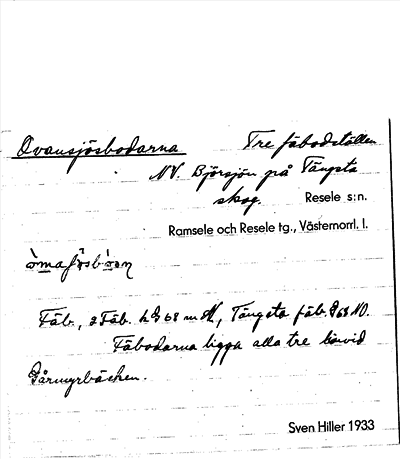 Ovansjösbodarna Tre fäbodställen
NV. Björsjön på Tängsta
skog. Resele s:n.
Ramsele och Resele tg., Västernorrl. l.
Fäb., 2 Fäb. h G 68 m N, Tängsta fäb. G 68 NO.
Fäbodarna ligga alla tre invid
Gårmyrbäcken.
Sven Hiller 1933